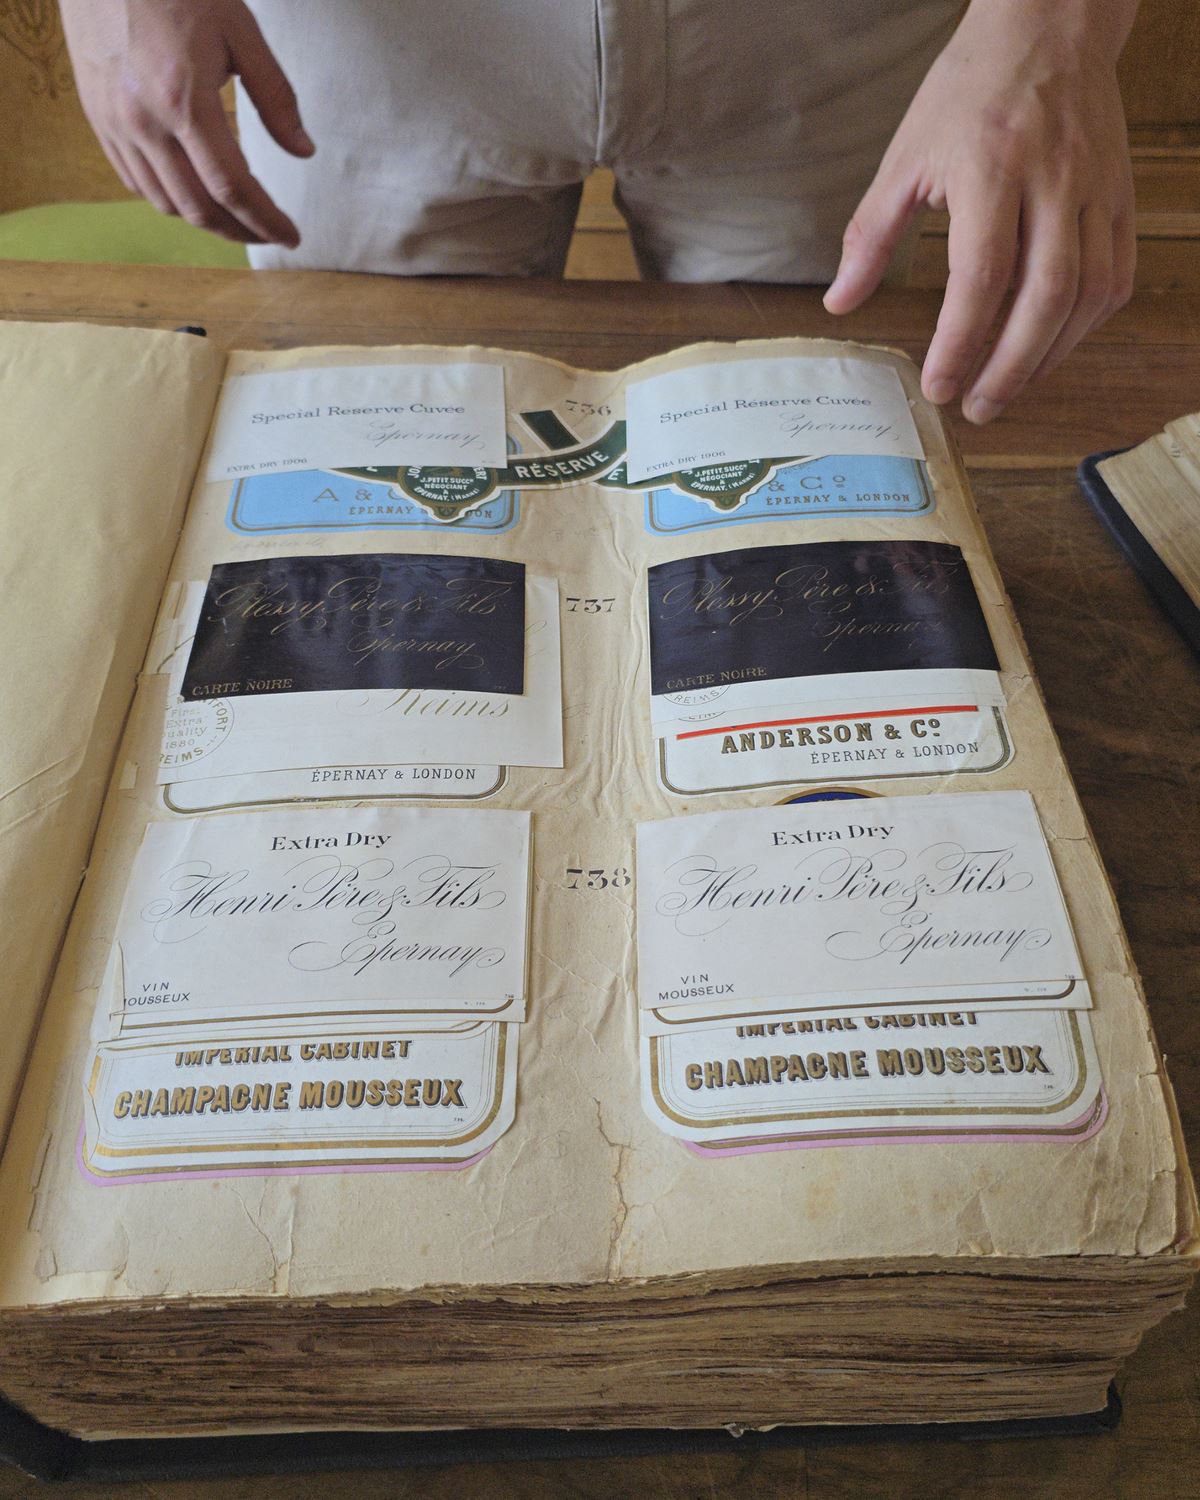 736
Special Reserve Cuvée
Epernay
EXTRA DRY 1906
RÉSERVE
J. PETIT. SUCCR
NÉGOCIANT
À
ÉPERNAY. (Marne)
A & C
ÉPERNAY
DON
Special Réserve Cuvée
Epernay
EXTRA DRY 1906
J. PETIT. SUCCR
NÉGOCIANT
À
ÉPERNAY. (Marne)
& Cº
ÉPERNAY & LONDON
737
Plessy Père & Fils
Epernay
CARTE NOIRE
Reims
First
Extra
uality
1880
REIMS
ÉPERNAY & LONDON
Plessy Père & Fils
Epernay
CARTE NOIRE
REIMS
ANDERSON & Cº
ÉPERNAY & LONDON
738
Extra Dry
Henri Père & Fils
Epernay
VIN
MOUSSEUX
IMPERIAL CABINET
CHAMPAGNE MOUSSEUX
Extra Dry
Henri Père & Fils
Epernay
VIN
MOUSSEUX
IMPERIAL CABINET
CHAMPAGNE MOUSSEUX